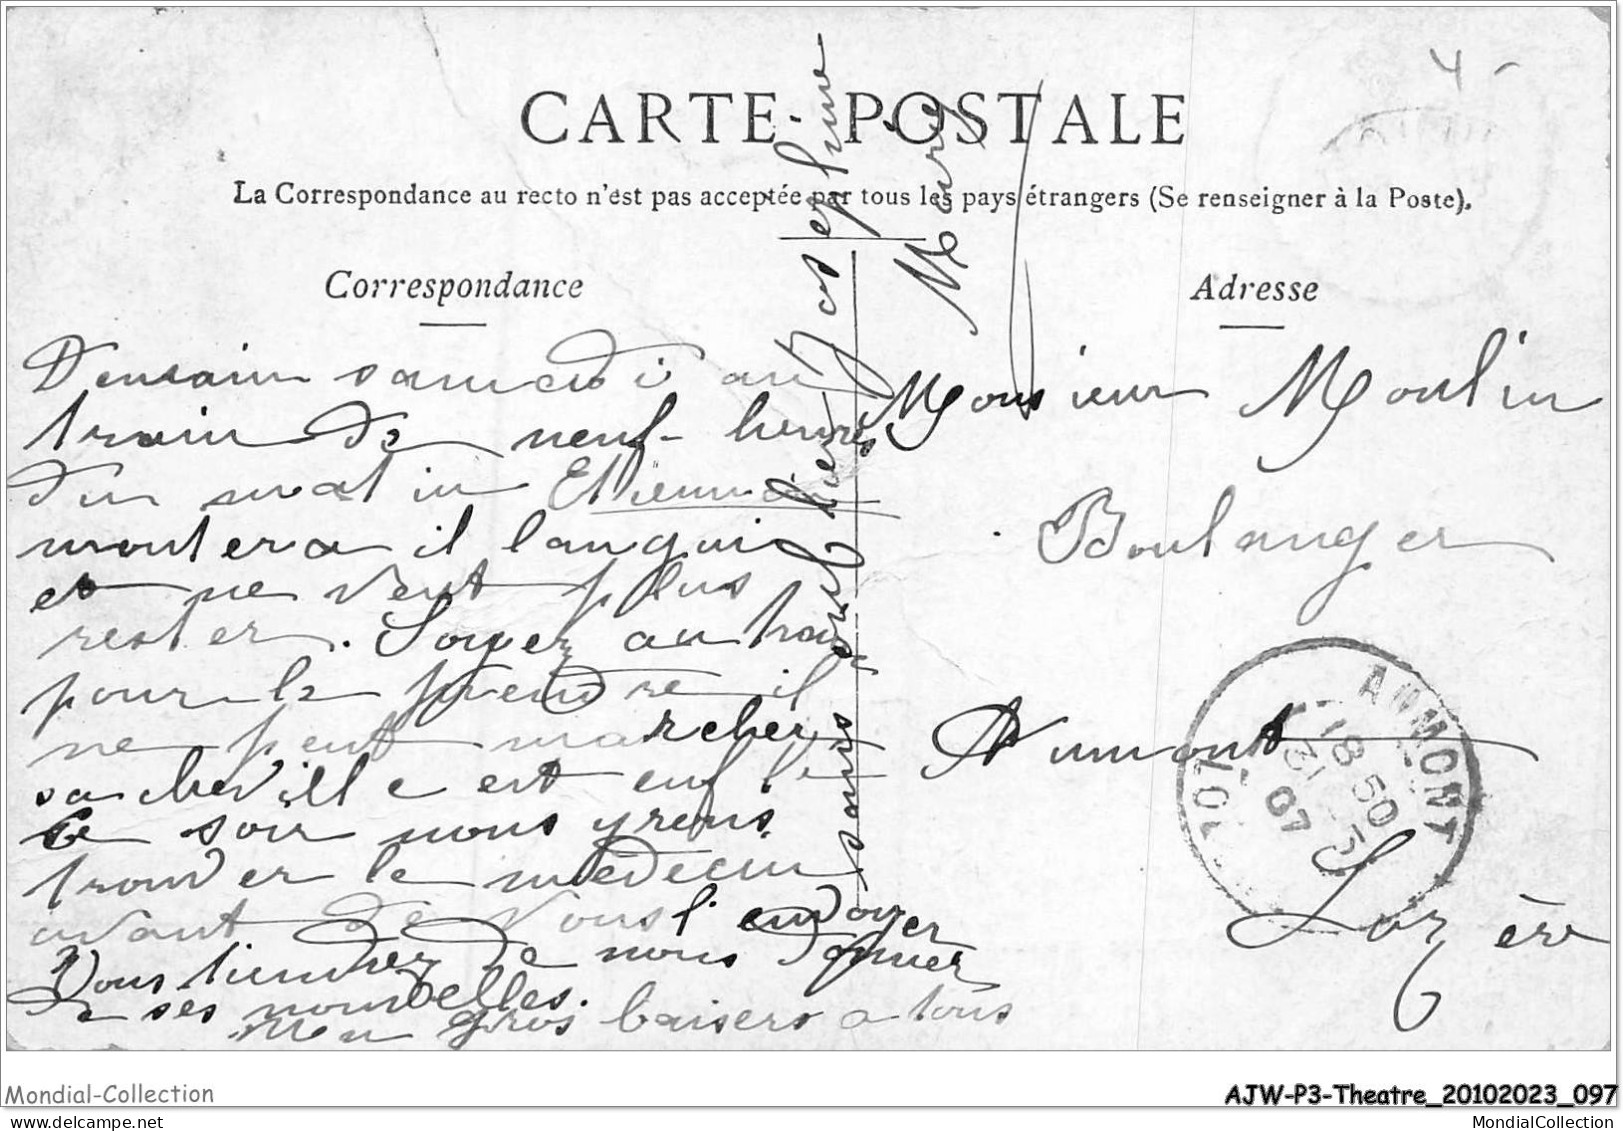 CARTE POSTALE
La Correspondance au recto n'est pas acceptée par tous les pays étrangers (Se renseigner à la Poste).
Correspondance
Demain samedi au
train de neuf heures
du matin Etienne
montera il languis
et ne veut plus
rester. Soyez au train
pour le prendre il
ne peut marcher
sa cheville est enflé
Ce soir nous yrons
trouver le médecin
avant de vous l'envoyer
Vous tiendrez de nous donner
de ses nouvelles.
gros baisers a tous
Josephine
Adresse
Monsieur Moulin
Boulanger
Aumont
Lozère
AUMONT
18 50
31 5
07
LOZ
4 -
Mondial-Collection
AJW-P3-Theatre_20102023_097
www.mondial-collection.com
MondialCollection